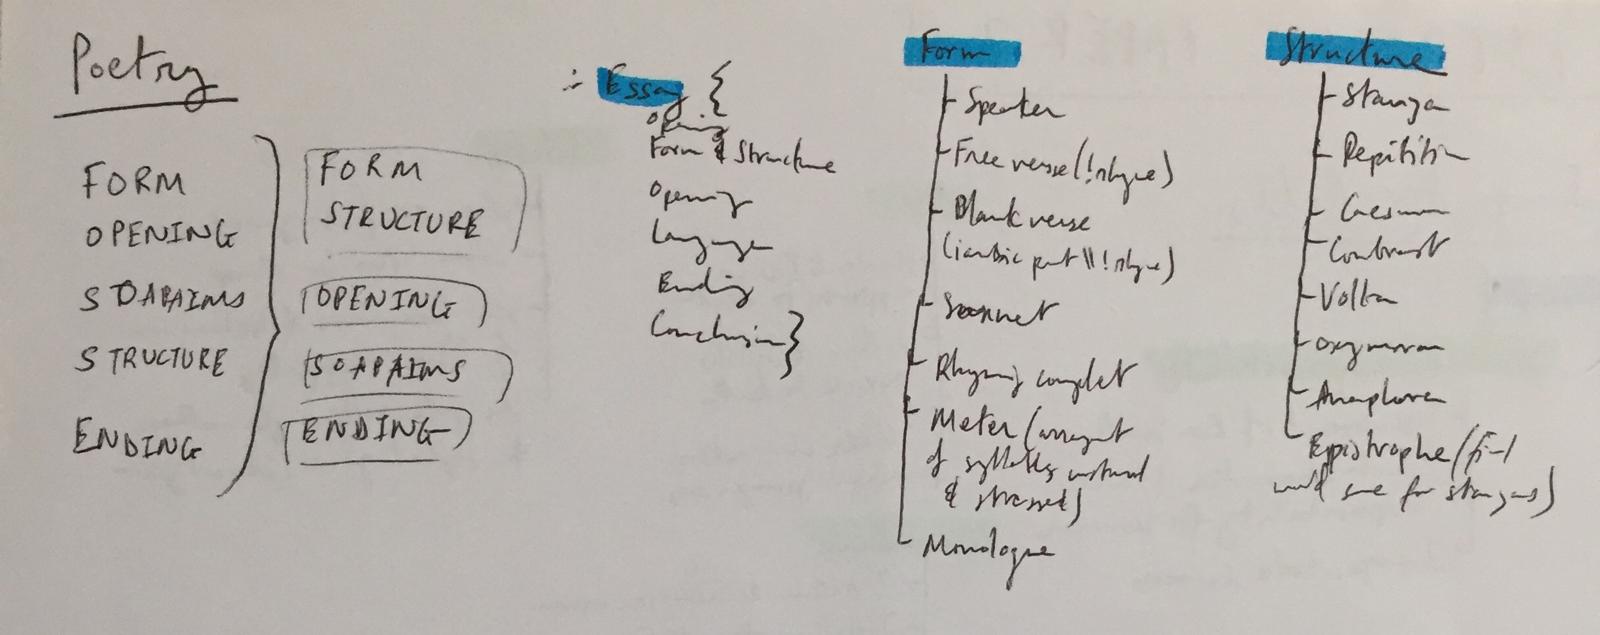 Poetry
FORM
OPENING
SOAPAIMS
STRUCTURE
ENDING
FORM
STRUCTURE
OPENING
SOAPAIMS
ENDING
∴ Essay {
Opening
Form & Structure
Opening
Language
Ending
Conclusion }
Form
Speaker
Free verse (!rhyme)
Blank verse
(iambic pent || !rhyme)
Sonnet
Rhyming couplet
Meter (arrangment
of syllables unstressed
& stressed)
Monologue
Structure
Stanza
Repitition
Caesura
Contrast
Volta
oxymoron
Anaphora
Epistrophe (final
word same for stanzas)